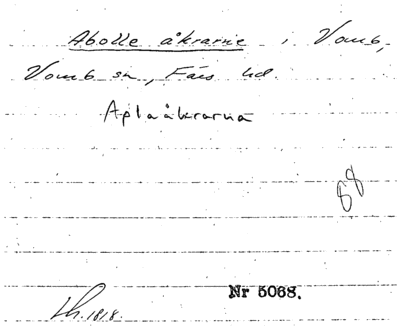 Abolle åkrarne i Vomb,
Vomb sn, Färs hd.
Aplaåkrarna
88
Nr 5068.
Lh. 1818.